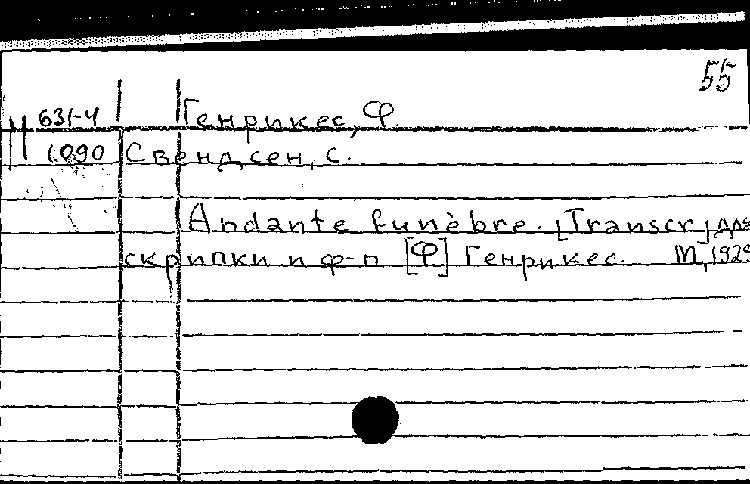 55
631-4 Генрикес, Ф.
1090 Свендсен, С.
Andante funèbre. [Transcr] для
скрипки и ф-п [Ф] Генрикес. М, 192